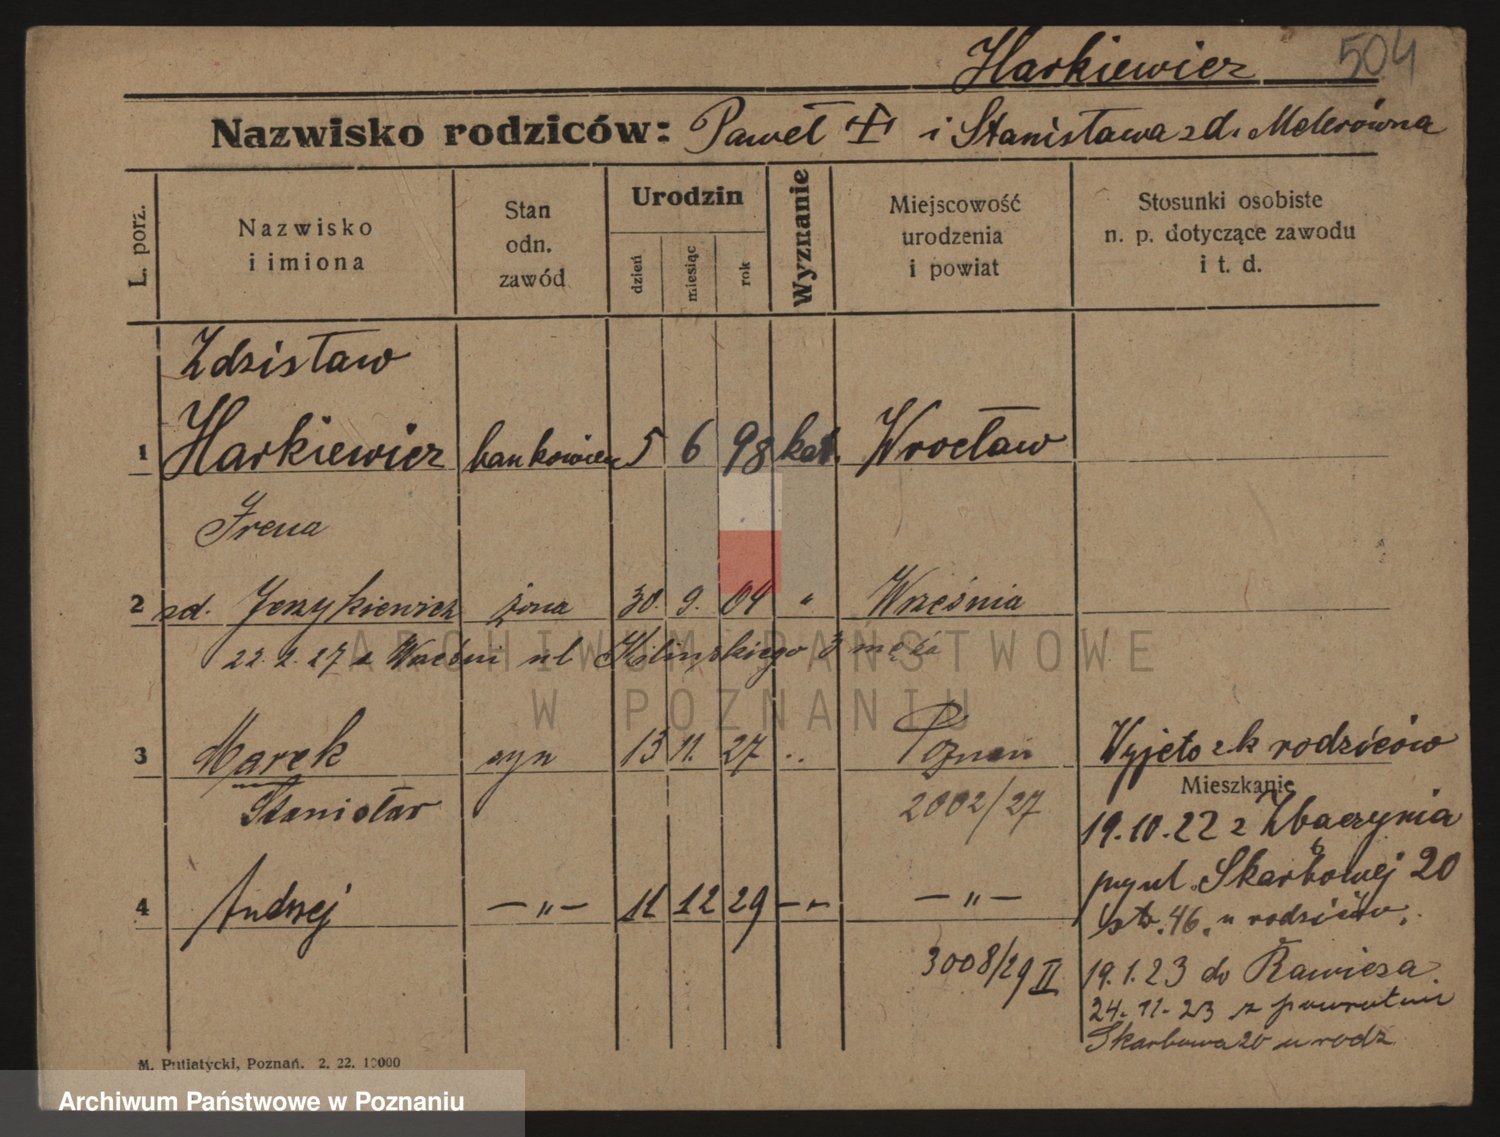 Harkiewicz 504
Nazwisko rodziców: Paweł i Stanisława zd. Melerówna
L. porz.
Nazwisko
i imiona
Stan
odn.
zawód
Urodzin
dzień
miesiąc
rok
Wyznanie
Miejscowość
urodzenia
i powiat
Stosunki osobiste
n. p. dotyczące zawodu
i t. d.
Zdzisław
1 Harkiewicz bankowiec 5 6 98 kat. Wrocław
Irena
2 zd. Jerzykiewicz żona 30. 9. 04 " Września
22.2.27 z Wrześni ul Kilińskiego 3 męża
3 Marek syn 13 11. 27 .. Poznań Wyjęto z k rodziców
Stanisław 2002/27
Mieszkanie
19.10.22 z Zbaczynia
przy ul. Skarbowej 20
4 Andrzej — " — 11 12 29 — " — — " —
str. 46. u rodziców.
3008/29 II
19.1.23 do Rawicza
24.11.23 z powrotem
Skarbowa 20 u rodz
M. Putiatycki, Poznań. 2. 22. 10000
ARCHIWUM PAŃSTWOWE
W POZNANIU
Archiwum Państwowe w Poznaniu